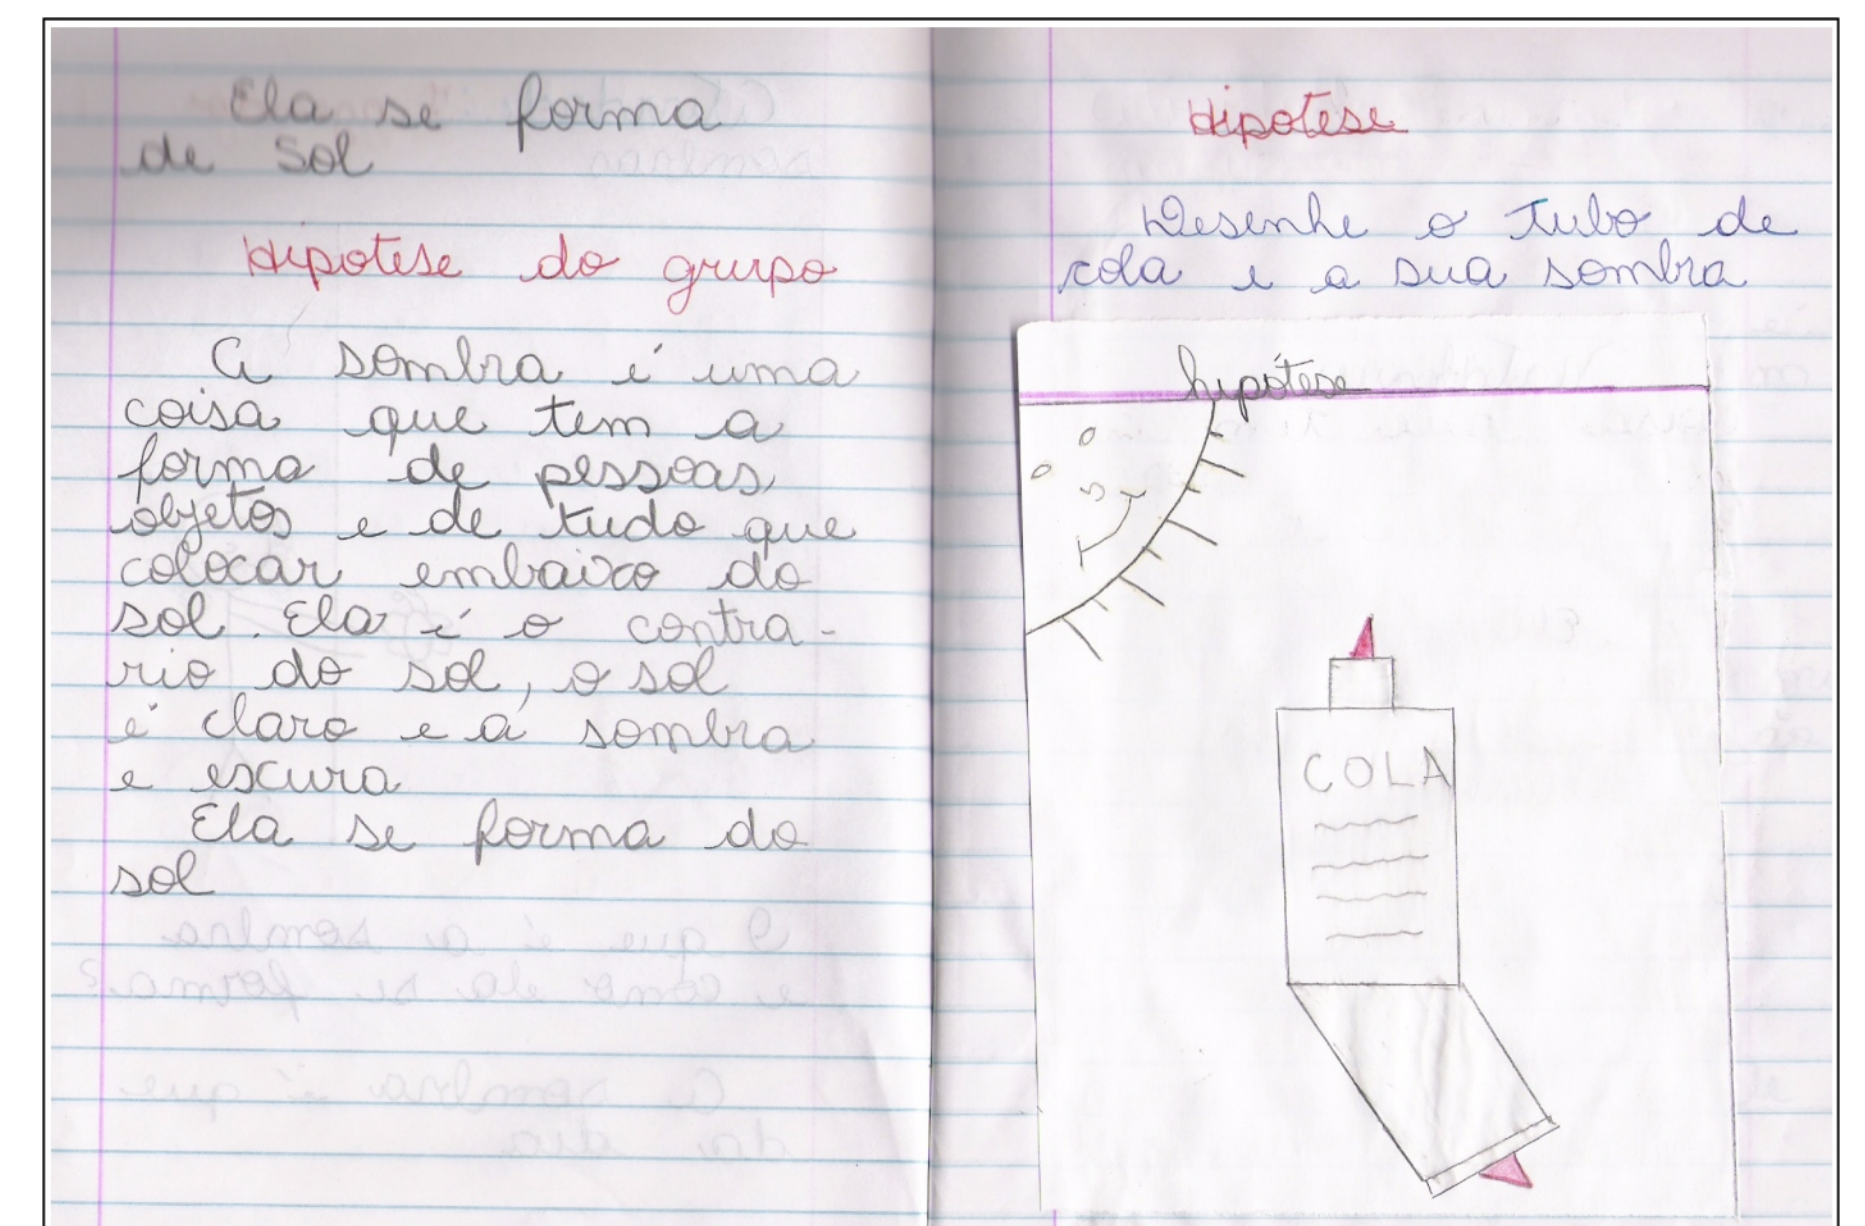 Ela se forma
de sol
Hipotese do grupo
A sombra é uma
coisa que tem a
forma de pessoas,
objetos e de tudo que
colocar embaixo do
sol. Ela é o contra-
rio do sol, o sol
é claro e a sombra
e escura
Ela se forma do
sol
O que é a sombra
e como ela se forma?
A sombra é que
da dia
Hipotese
Desenhe o tubo de
cola e a sua sombra
hipótese
COLA